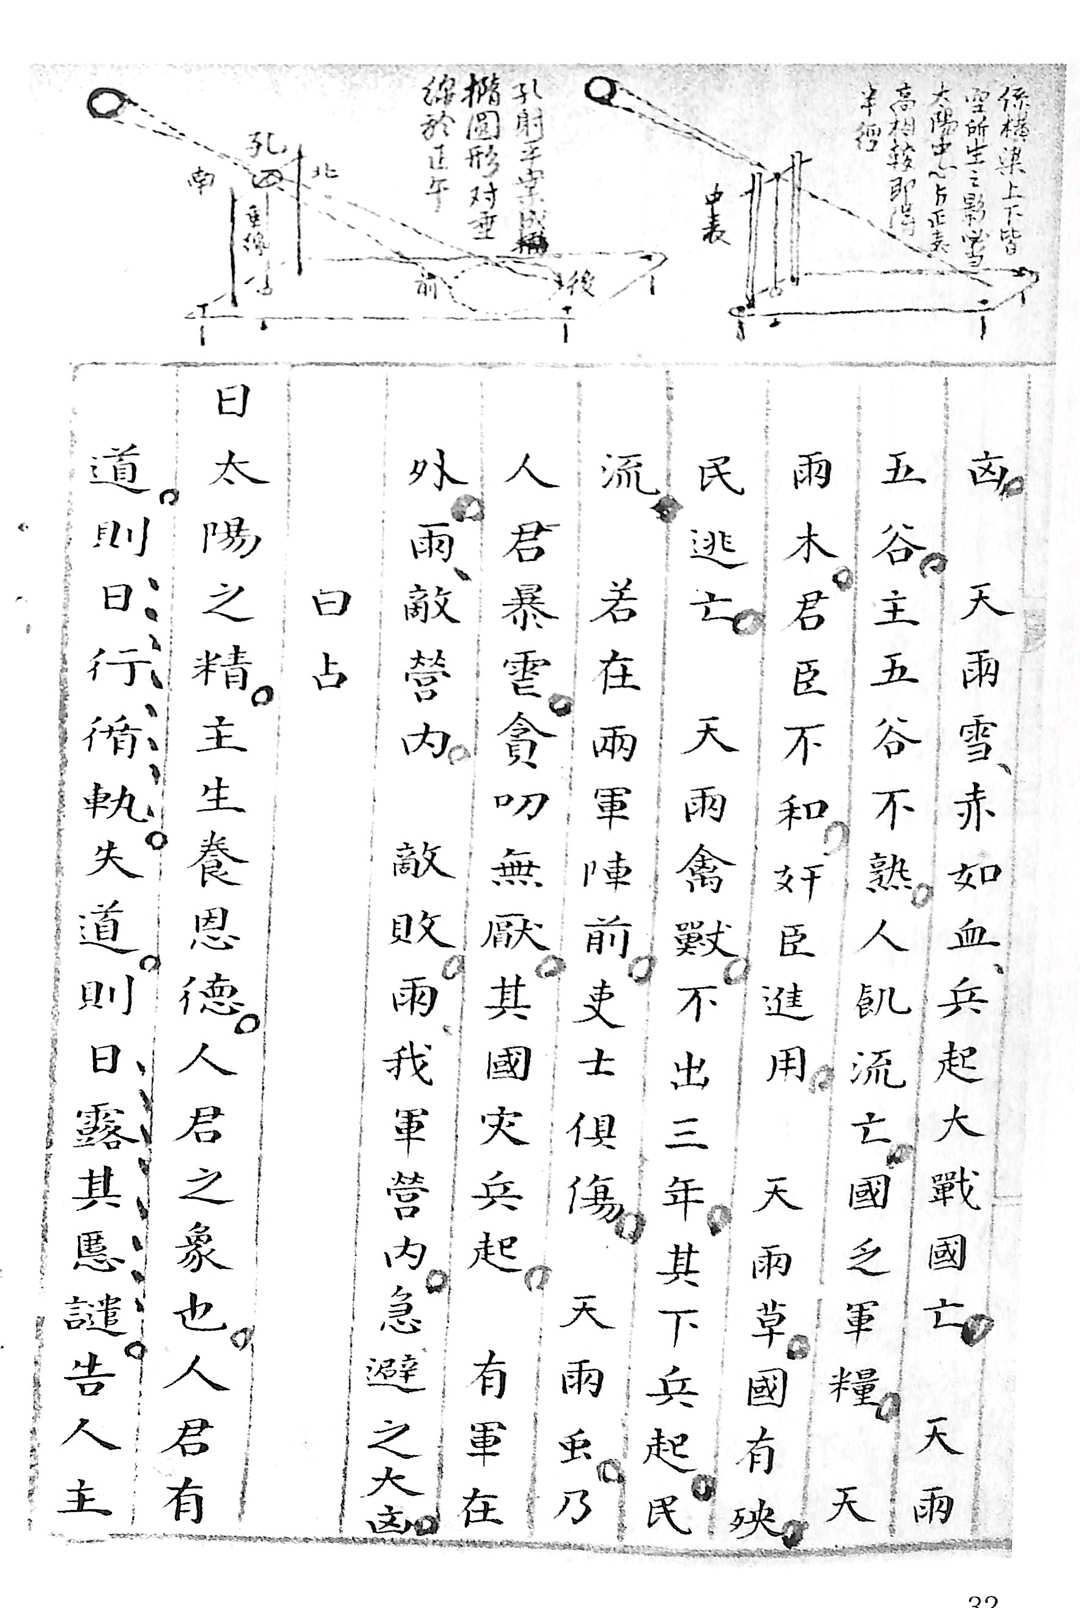 係橫梁上下皆
空所生之影當
太陽中心与正表
高相較即得
半徑
中表
孔射平案成
橢圓形对垂
線於正午
北
孔
垂線
南
前
後
凶 天雨雪赤如血兵起大戰國亡 天雨
五谷主五谷不熟人飢流亡國乏軍糧 天
雨木君臣不和奸臣進用 天雨草國有殃
民逃亡 天雨禽獸不出三年其下兵起民
流 若在兩軍陣前吏士俱傷 天雨虫乃
人君暴雹貪叨無厭其國灾兵起 有軍在
外雨敵營內 敵敗雨我軍營內急避之大凶
日占
日太陽之精主生養恩德人君之象也人君有
道則日行循軌失道則日露其慝譴告人主
32